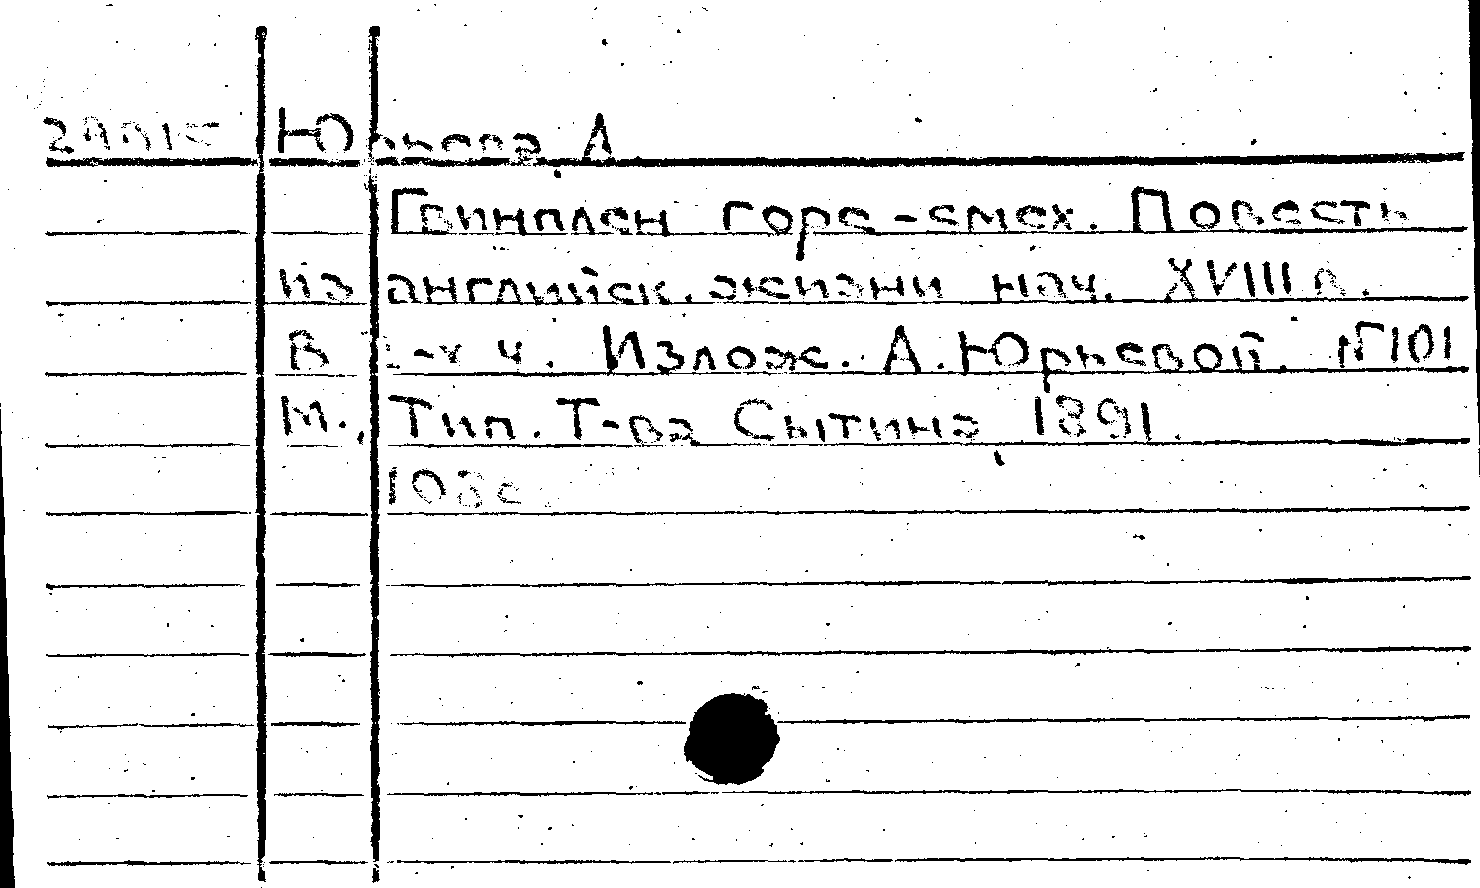 Юрьева А
Гвинплен горе-смех. Повесть
из английск. жизни нач. XVIII в.
В 2-х ч. Излож. А. Юрьевой.
М., Тип. Т-ва Сытина, 1891.
108с.